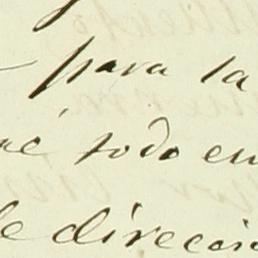 para la
todo en
de direcció